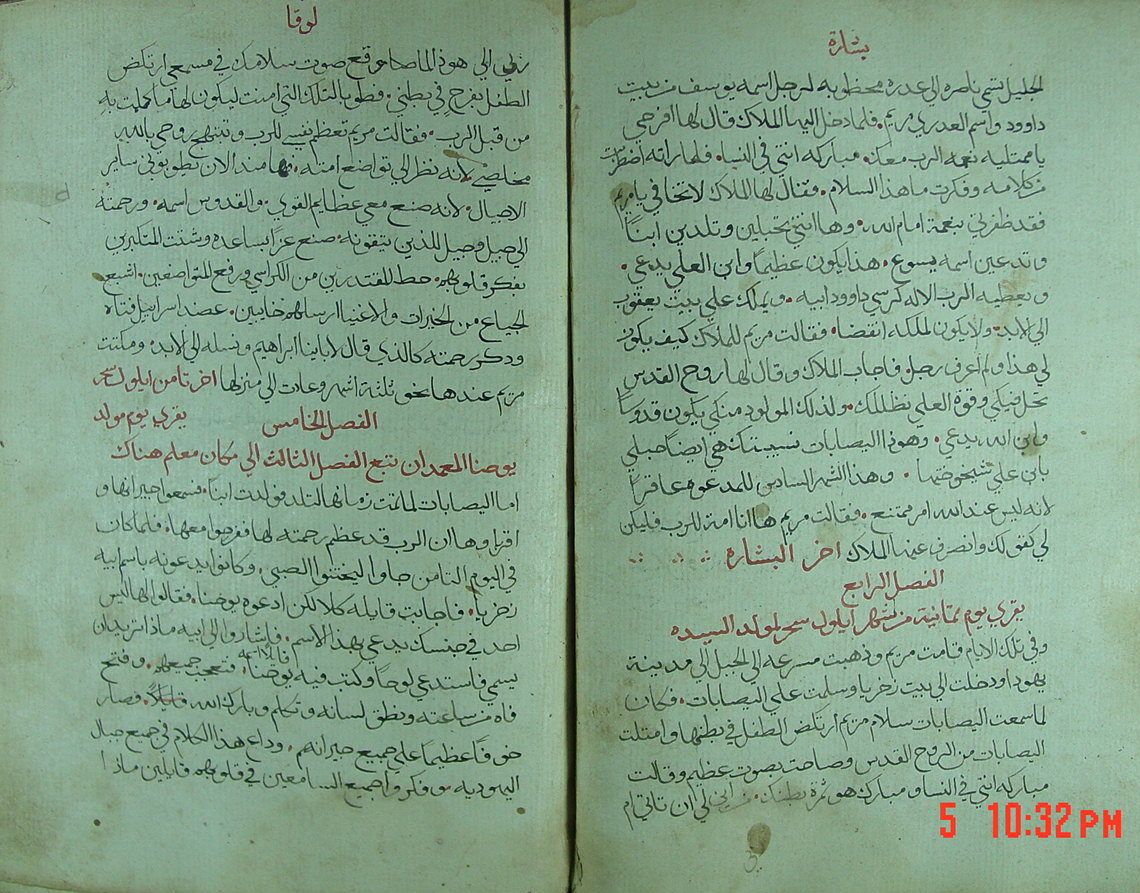 بشارة
الجليل تسمي ناصره الي عدره مخطوبه لرجل اسمه يوسف من بيت
داوود واسم العدري مريم. فلما دخل اليها الملاك قال لها افرحي
يا ممتليه نعمه الرب معك. مباركه انتي في النسا. فلما راته اضطربت
من كلامه وفكرت ما هذا السلام. فقال لها الملاك لا تخافي يا مريم
فقد ظفرتي بنعمة امام الله. وها انتي تحبلين وتلدين ابناً
وتدعين اسمه يسوع. هذا يكون عظيماً وابن العلي يدعي.
ويعطيه الرب الاله كرسي داوود ابيه. ويملك علي بيت يعقوب
الي الابد. ولا يكون لملكه انقضا. فقالت مريم للملاك كيف يكون
لي هذا ولم اعرف رجل فاجاب الملاك وقال لها روح القدس
تحل فيكي وقوة العلي تظللك. ولذلك المولود منكي يكون قدوساً
وابن الله يدعي. وهوذا اليصابات نسيبتك هي ايضاً حبلي
بابن علي شيخوختها. وهذا الشهر السادس للمدعوه عاقراً
لانه ليس عند الله امر ممتنع. فقالت مريم ها انا امة للرب فليكن
لي كقولك وانصرف عنها الملاك اخر البشاره
الفصل الرابع
يقري يوم ثمانية من شهر ايلول سحر لمولد السيده
وفي تلك الايام قامت مريم وذهبت مسرعه الي الجبل الي مدينة
يهودا ودخلت الي بيت زخريا وسلمت علي اليصابات. فكان
لما سمعت اليصابات سلام مريم ارتكض الطفل في بطنها وامتلت
اليصابات من الروح القدس وصاحت بصوت عظيم وقالت
مباركه انتي في النسا ومبارك هو ثمرة بطنك. من اين لي ان تاتي ام
لوقا
ربي الي هوذا لما صار وقع صوت سلامك في مسمعي ارتكض
الطفل بفرح في بطني. فطوبا لتلك التي امنت ليكون لها ما كملت به
من قبل الرب. فقالت مريم تعظم نفسي للرب وتبتهج روحي بالله
مخلصي لانه نظر الي تواضع امته. فها منذ الان يطوبوني ساير
الاجيال. لانه صنع معي عظايم القوي. والقدوس اسمه. ورحمته
الي جيل وجيل للذين يتقونه. صنع عزاً بساعده وشتت المتكبرين
بفكر قلوبهم. حط المقتدرين من الكراسي ورفع المتواضعين. اشبع
الجياع من الخيرات والاغنيا ارسلهم خايبين. عضد اسراييل فتاه
وذكر رحمته كالذي قال لاباينا ابراهيم ونسله الي الابد. ومكثت
مريم عندها نحو ثلثة اشهر وعادت الي منزلها اخر ثامن ايلول سحر
الفصل الخامس يقري يوم مولد
يوحنا المعمدان تتبع الفصل الثالث الي مكان معلم هناك
اما اليصابات لما تمت زمانها لتلد فولدت ابناً. فسمعوا جيرانها و
اقرباوها ان الرب قد عظم رحمته لها ففرحوا معها. فلما كان
في اليوم الثامن جاوا ليختنوا الصبي. وكانوا يدعونه باسم ابيه
زخريا. فاجابت قايله كلا لكن ادعوه يوحنا. فقالوا لها ليس
احد في جنسك يدعي بهذا الاسم. فاشاروا الي ابيه ماذا تريد ان
يسمي فاستدعي لوحاً وكتب فيه يوحنا. فتعجب جميعهم. وفتح
فاه من ساعته ونطق لسانه وتكلم وبارك الله قايلاً. وصار
خوفاً عظيماً علي جميع جيرانهم. وذاع هذا الكلام في جميع جبال
اليهوديه وفكروا جميع السامعين في قلوبهم قايلين ماذا
5 10:32 PM